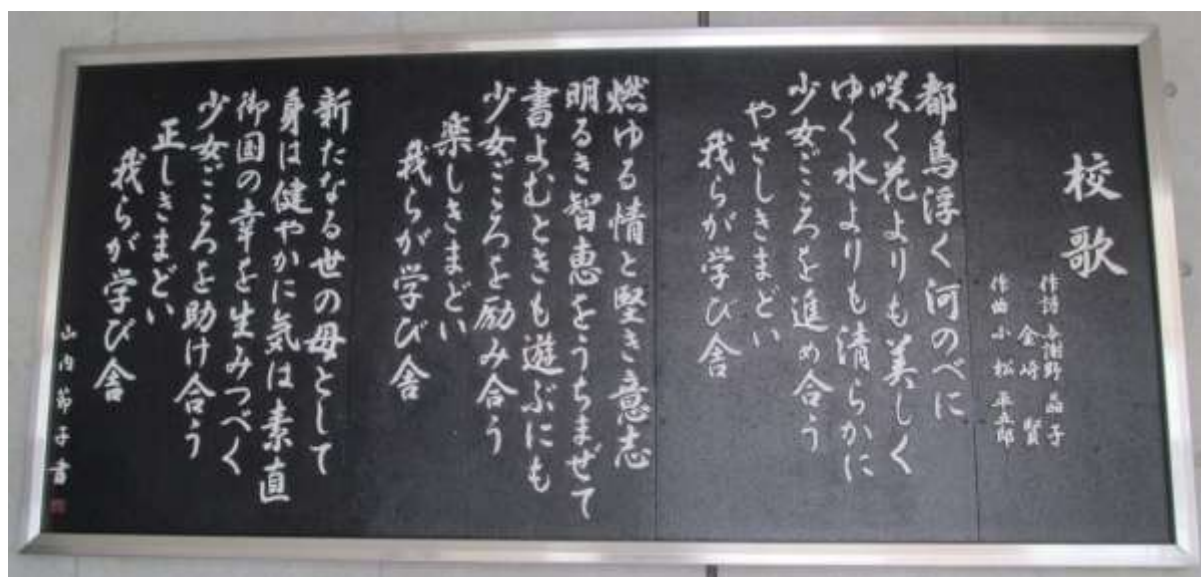 校歌
作詩 与謝野 晶子
金崎 賢
作曲 小松 平五郎
都鳥浮く河のべに
咲く花よりも美しく
ゆく水よりも清らかに
少女ごころを進め合う
やさしきまどい
我らが学び舎
燃ゆる情と堅き意志
明るき智恵をうちまぜて
書よむときも遊ぶにも
少女ごころを励み合う
楽しきまどい
我らが学び舎
新たなる世の母として
身は健やかに気は素直
御国の幸を生みつべく
少女ごころを助け合う
正しきまどい
我らが学び舎
山内節子書